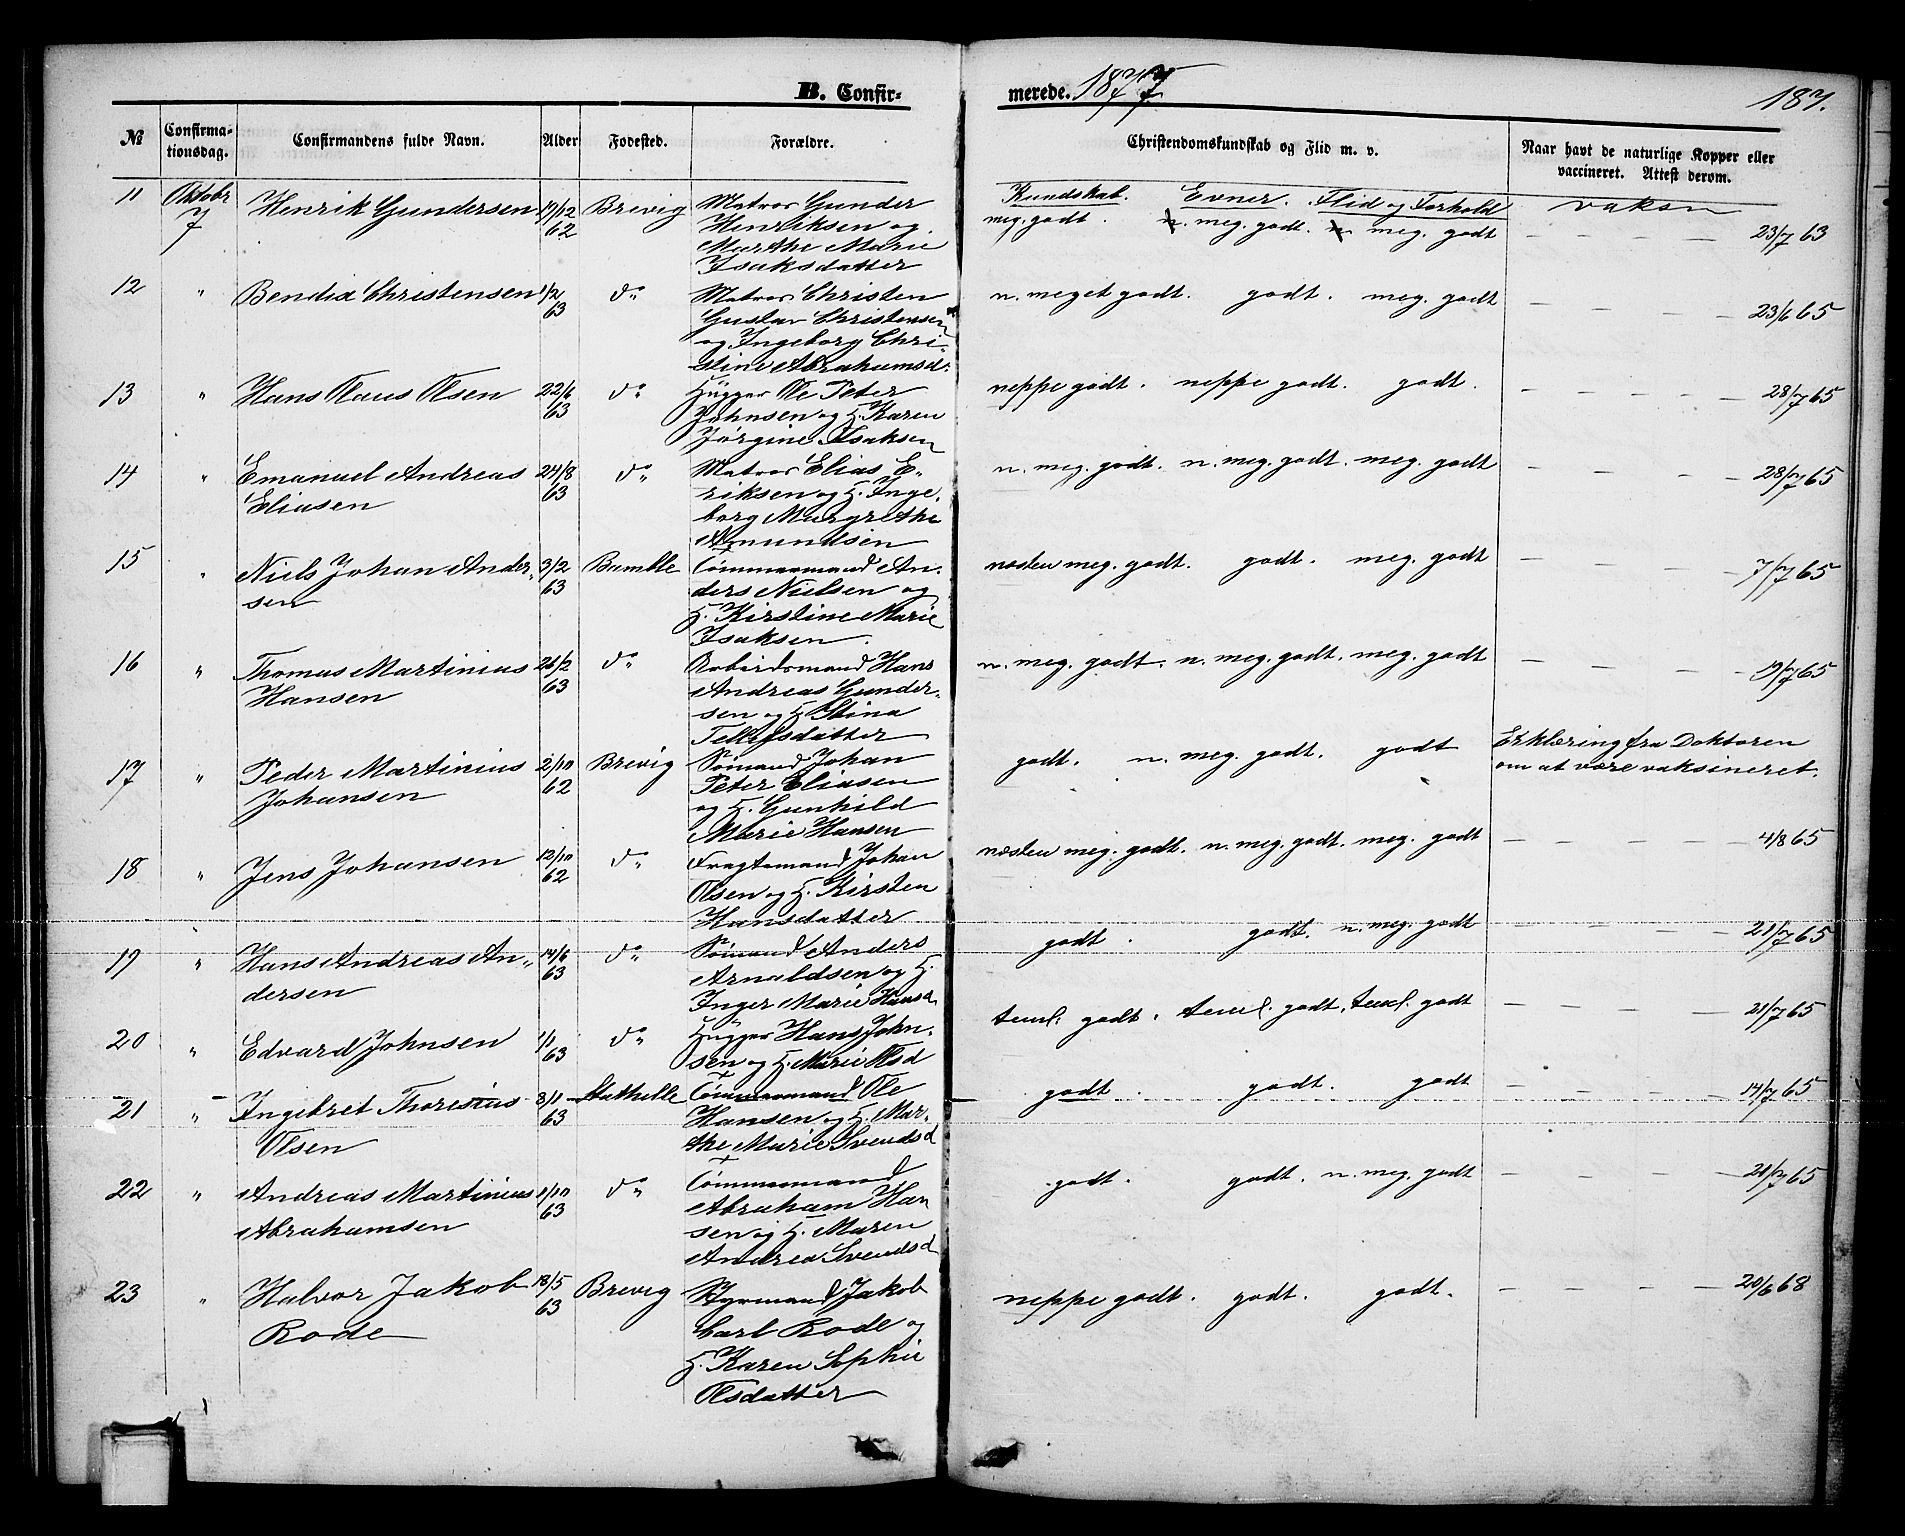 B. Confir-
merede. 1877
187.
№ Confirma-tionsdag. Confirmandens fulde Navn. Alder Fødested. Forældre. Christendomskundskab og Flid m. v. Naar havt de naturlige Kopper eller vaccineret. Attest derom.
Kundskab. Evner. Flid og Forhold vaksn
11 Oktobr 7 Henrik Gundersen 19/12 62 Brevig Matros Gunder meg. godt. n. meg. godt. n. meg. godt 23/7 63
Henriksen og
Marthe Marie
Isaksdatter
12 " Bendix Christensen 1/2 63 do Matros Christen n. meget godt. godt. meg. godt 23/6 65
Gustav Christensen
og Ingeborg Chri-
stine Abrahamsd.
13 " Hans Claus Olsen 22/6 63 do Hugger Ole Peter neppe godt. neppe godt. godt. 28/7 65
Johnsen og H. Karen
Jørgine Isaksen
14 " Emanuel Andreas 24/8 63 do Matros Elias E- n. meg. godt. n. meg. godt. meg. godt 28/7 65
Eliasen riksen og H. Inge-
borg Margrethe
Amundsen
15 " Niels Johan Ander- 3/2 63 Bamble Tømmermand An- næsten meg. godt. godt. meg. godt 7/7 65
sen ders Nielsen og
H. Kirstine Marie
Isaksen.
16 " Thomas Martinius 26/2 63 do Arbeidsmand Hans n. meg. godt. n. meg. godt. meg. godt 19/7 65
Hansen Andreas Gunder-
sen og H. Stina
Tellefsdatter
17 " Peder Martinius 2/10 62 Brevig Sømand Johan godt. n. meg. godt. godt Erklæring fra Doktoren
Johansen Peter Eliasen om at være vaksineret.
og H. Gunhild
Marie Hansen
18 " Jens Johansen 12/10 62 do Fragtemand Johan næsten meg. godt. n. meg. godt. meg. godt 4/8 65
Olsen og H. Kirsten
Hansdatter
19 " Hans Andreas An- 14/6 63 do Sømand Anders godt. godt. n. meg. godt 21/7 65
dersen Arnoldsen og H.
Inger Marie Hansd.
20 " Edvard Johnsen 1/1 63 do Hugger Hans John- teml. godt. temel. godt. temel. godt 21/7 65
sen og H. Marie Olsd
21 " Ingebret Thoresius 8/1 63 Stathelle Tømmermand Ole godt. godt. godt 14/7 65
Olsen Hansen og H. Mar-
the Marie Svendsd
22 " Andreas Martinius 1/10 63 do Tømmermand godt. godt. n. meg. godt 21/7 65
Abrahamsen Abraham Han
sen og H. Maren
Andrea Svendsd
23 " Halvor Jakob 18/5 63 Brevig Styrmand Jakob neppe godt. godt. godt. 20/6 68
Rode Carl Rode og
H. Karen Sophie
Olsdatter